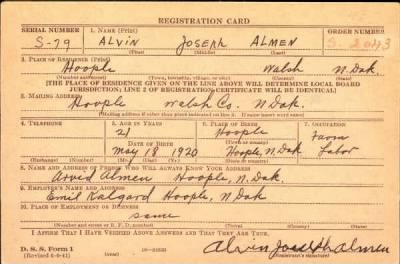 REGISTRATION CARD
SERIAL NUMBER 1. NAME (Print) ORDER NUMBER
S-79 ALVIN JOSEPH ALMEN S. 2043
(First) (Middle) (Last)
2. PLACE OF RESIDENCE (Print)
Hoople Walsh N. Dak.
(Number and street) (Town, township, village, or city) (County) (State)
[THE PLACE OF RESIDENCE GIVEN ON THE LINE ABOVE WILL DETERMINE LOCAL BOARD
JURISDICTION; LINE 2 OF REGISTRATION CERTIFICATE WILL BE IDENTICAL]
3. MAILING ADDRESS
Hoople Walsh Co. N. Dak.
[Mailing address if other than place indicated on line 2. If same insert word same]
4. TELEPHONE 5. AGE IN YEARS 6. PLACE OF BIRTH 7. OCCUPATION
21 Hoople Farm
DATE OF BIRTH (Town or county)
May 18 1920 Hoople, N. Dak Labor
(Exchange) (Number) (Mo.) (Day) (Yr.) (State or country)
8. NAME AND ADDRESS OF PERSON WHO WILL ALWAYS KNOW YOUR ADDRESS
Arvid Almen Hoople, N. Dak.
9. EMPLOYER'S NAME AND ADDRESS
Emil Kalgard Hoople, N. Dak
10. PLACE OF EMPLOYMENT OR BUSINESS
same
(Number and street or R. F. D. number) (Town) (County) (State)
I AFFIRM THAT I HAVE VERIFIED ABOVE ANSWERS AND THAT THEY ARE TRUE.
D. S. S. Form 1
(Revised 6-9-41) Alvin Joseph Almen
(Registrant's signature)